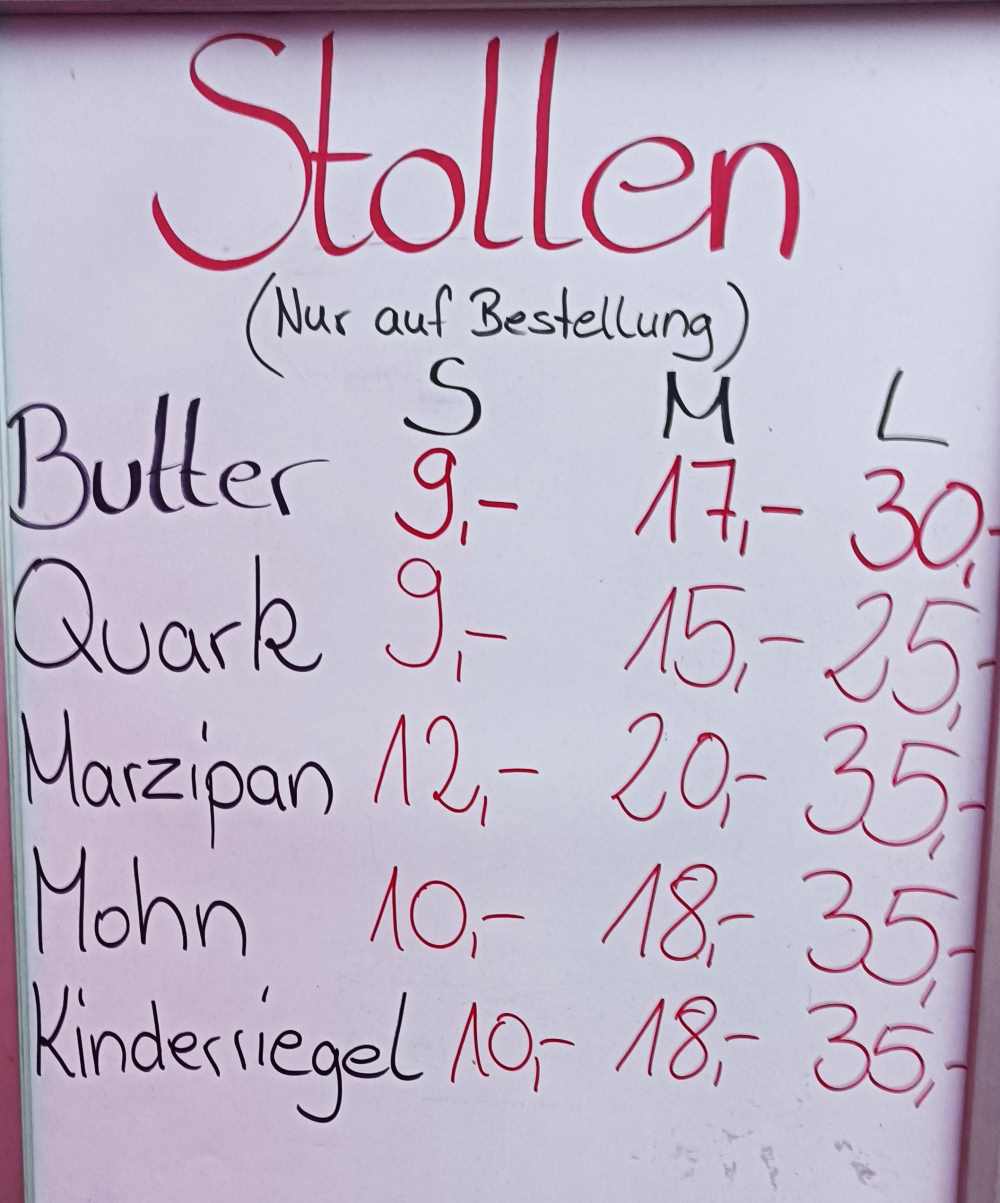 Stollen
(Nur auf Bestellung)
S M L
Butter 9,- 17,- 30,-
Quark 9,- 15,- 25,-
Marzipan 12,- 20,- 35,-
Mohn 10,- 18,- 35,-
Kinderriegel 10,- 18,- 35,-